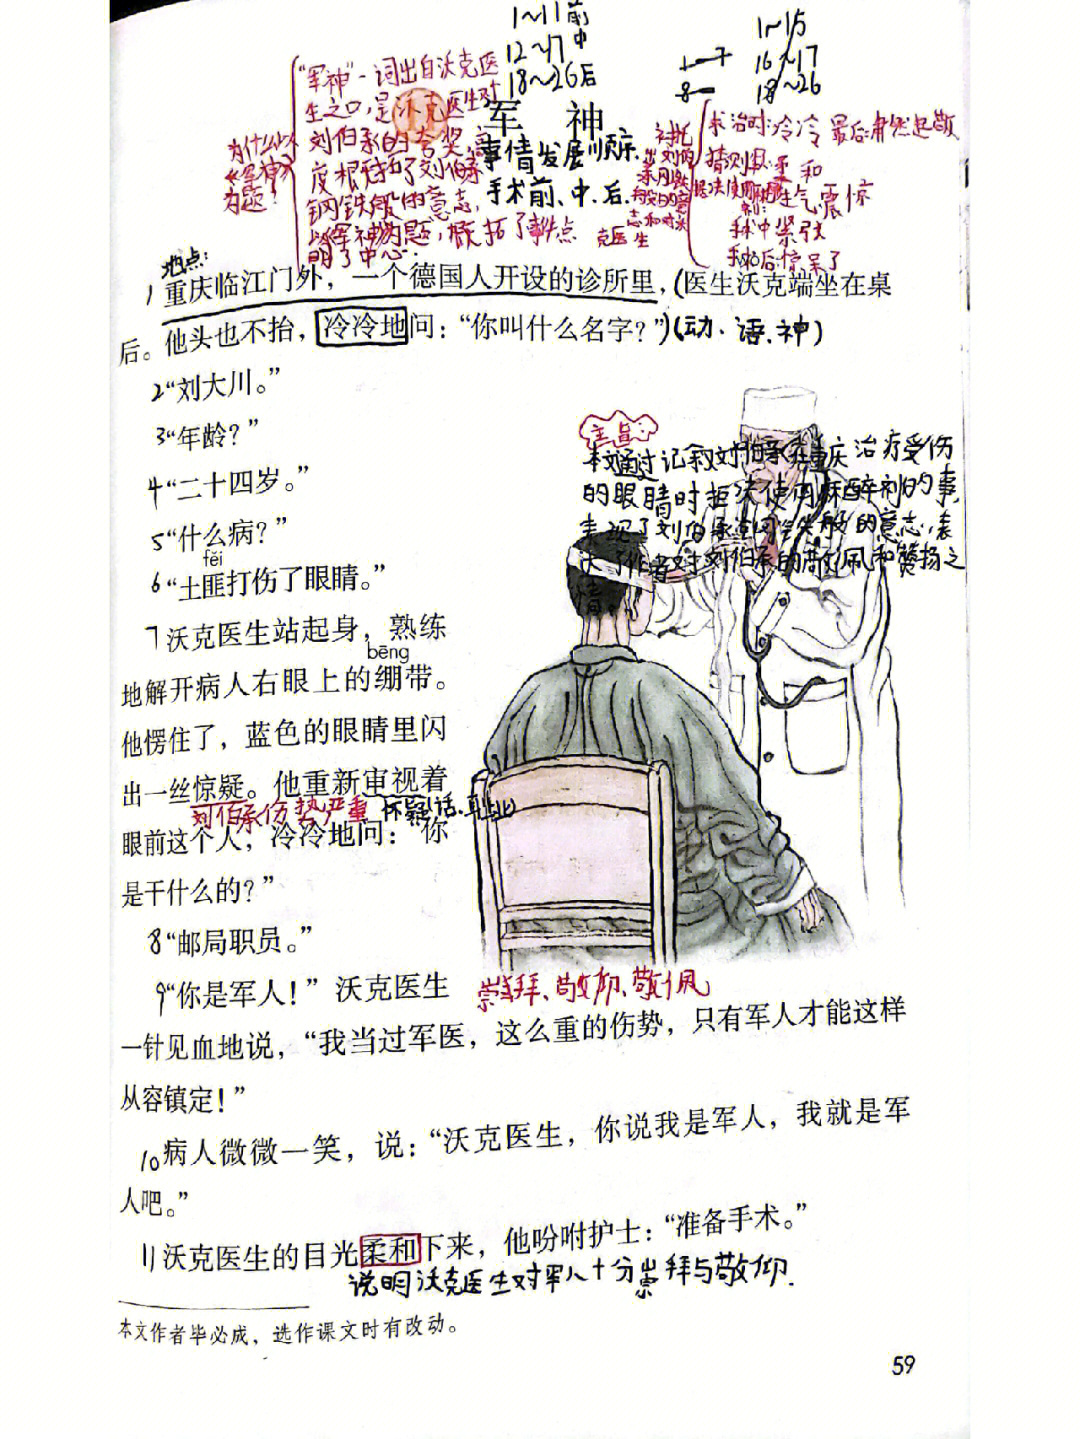 1~11前
12~17中
18~26后
1~15
16~17
18~26
1—7
8—
"军神"一词出自沃克医
生之口,是沃克医生对
刘伯承的夸奖,高
度概括了刘伯承
钢铁般的意志,
以军神为题,概括了事件点
明了中心.
为什么以
《军神》
为题?
11
军 神
事情发展顺序.
手术前、中、后.
克医生
求治时:冷冷 最后:肃然起敬
柔和
生气 震惊
手术中紧张
手术后:惊呆了
地点:
1重庆临江门外,一个德国人开设的诊所里,(医生沃克端坐在桌
后。他头也不抬,冷冷地问:“你叫什么名字?”)(动、语、神)
2“刘大川。”
3“年龄?”
4“二十四岁。”
5“什么病?”
fěi
6“土匪打伤了眼睛。”
7沃克医生站起身,熟练
bēng
地解开病人右眼上的绷带。
他愣住了,蓝色的眼睛里闪
出一丝惊疑。他重新审视着
刘伯承伤势严重 怀疑(话、职业)
眼前这个人,冷冷地问:“你
是干什么的?”
主旨:
本文通过记叙刘伯承在重庆治疗受伤
的眼睛时拒决使用麻醉剂的事,
表现了刘伯承钢铁般的意志,表
达了作者对刘伯承的敬佩和赞扬之
情。
8“邮局职员。”
9“你是军人!”沃克医生
崇拜、敬仰、敬佩
一针见血地说,“我当过军医,这么重的伤势,只有军人才能这样
从容镇定!”
10病人微微一笑,说:“沃克医生,你说我是军人,我就是军
人吧。”
11沃克医生的目光柔和下来,他吩咐护士:“准备手术。”
说明沃克医生对军人十分崇拜与敬仰.
本文作者毕必成,选作课文时有改动。
59